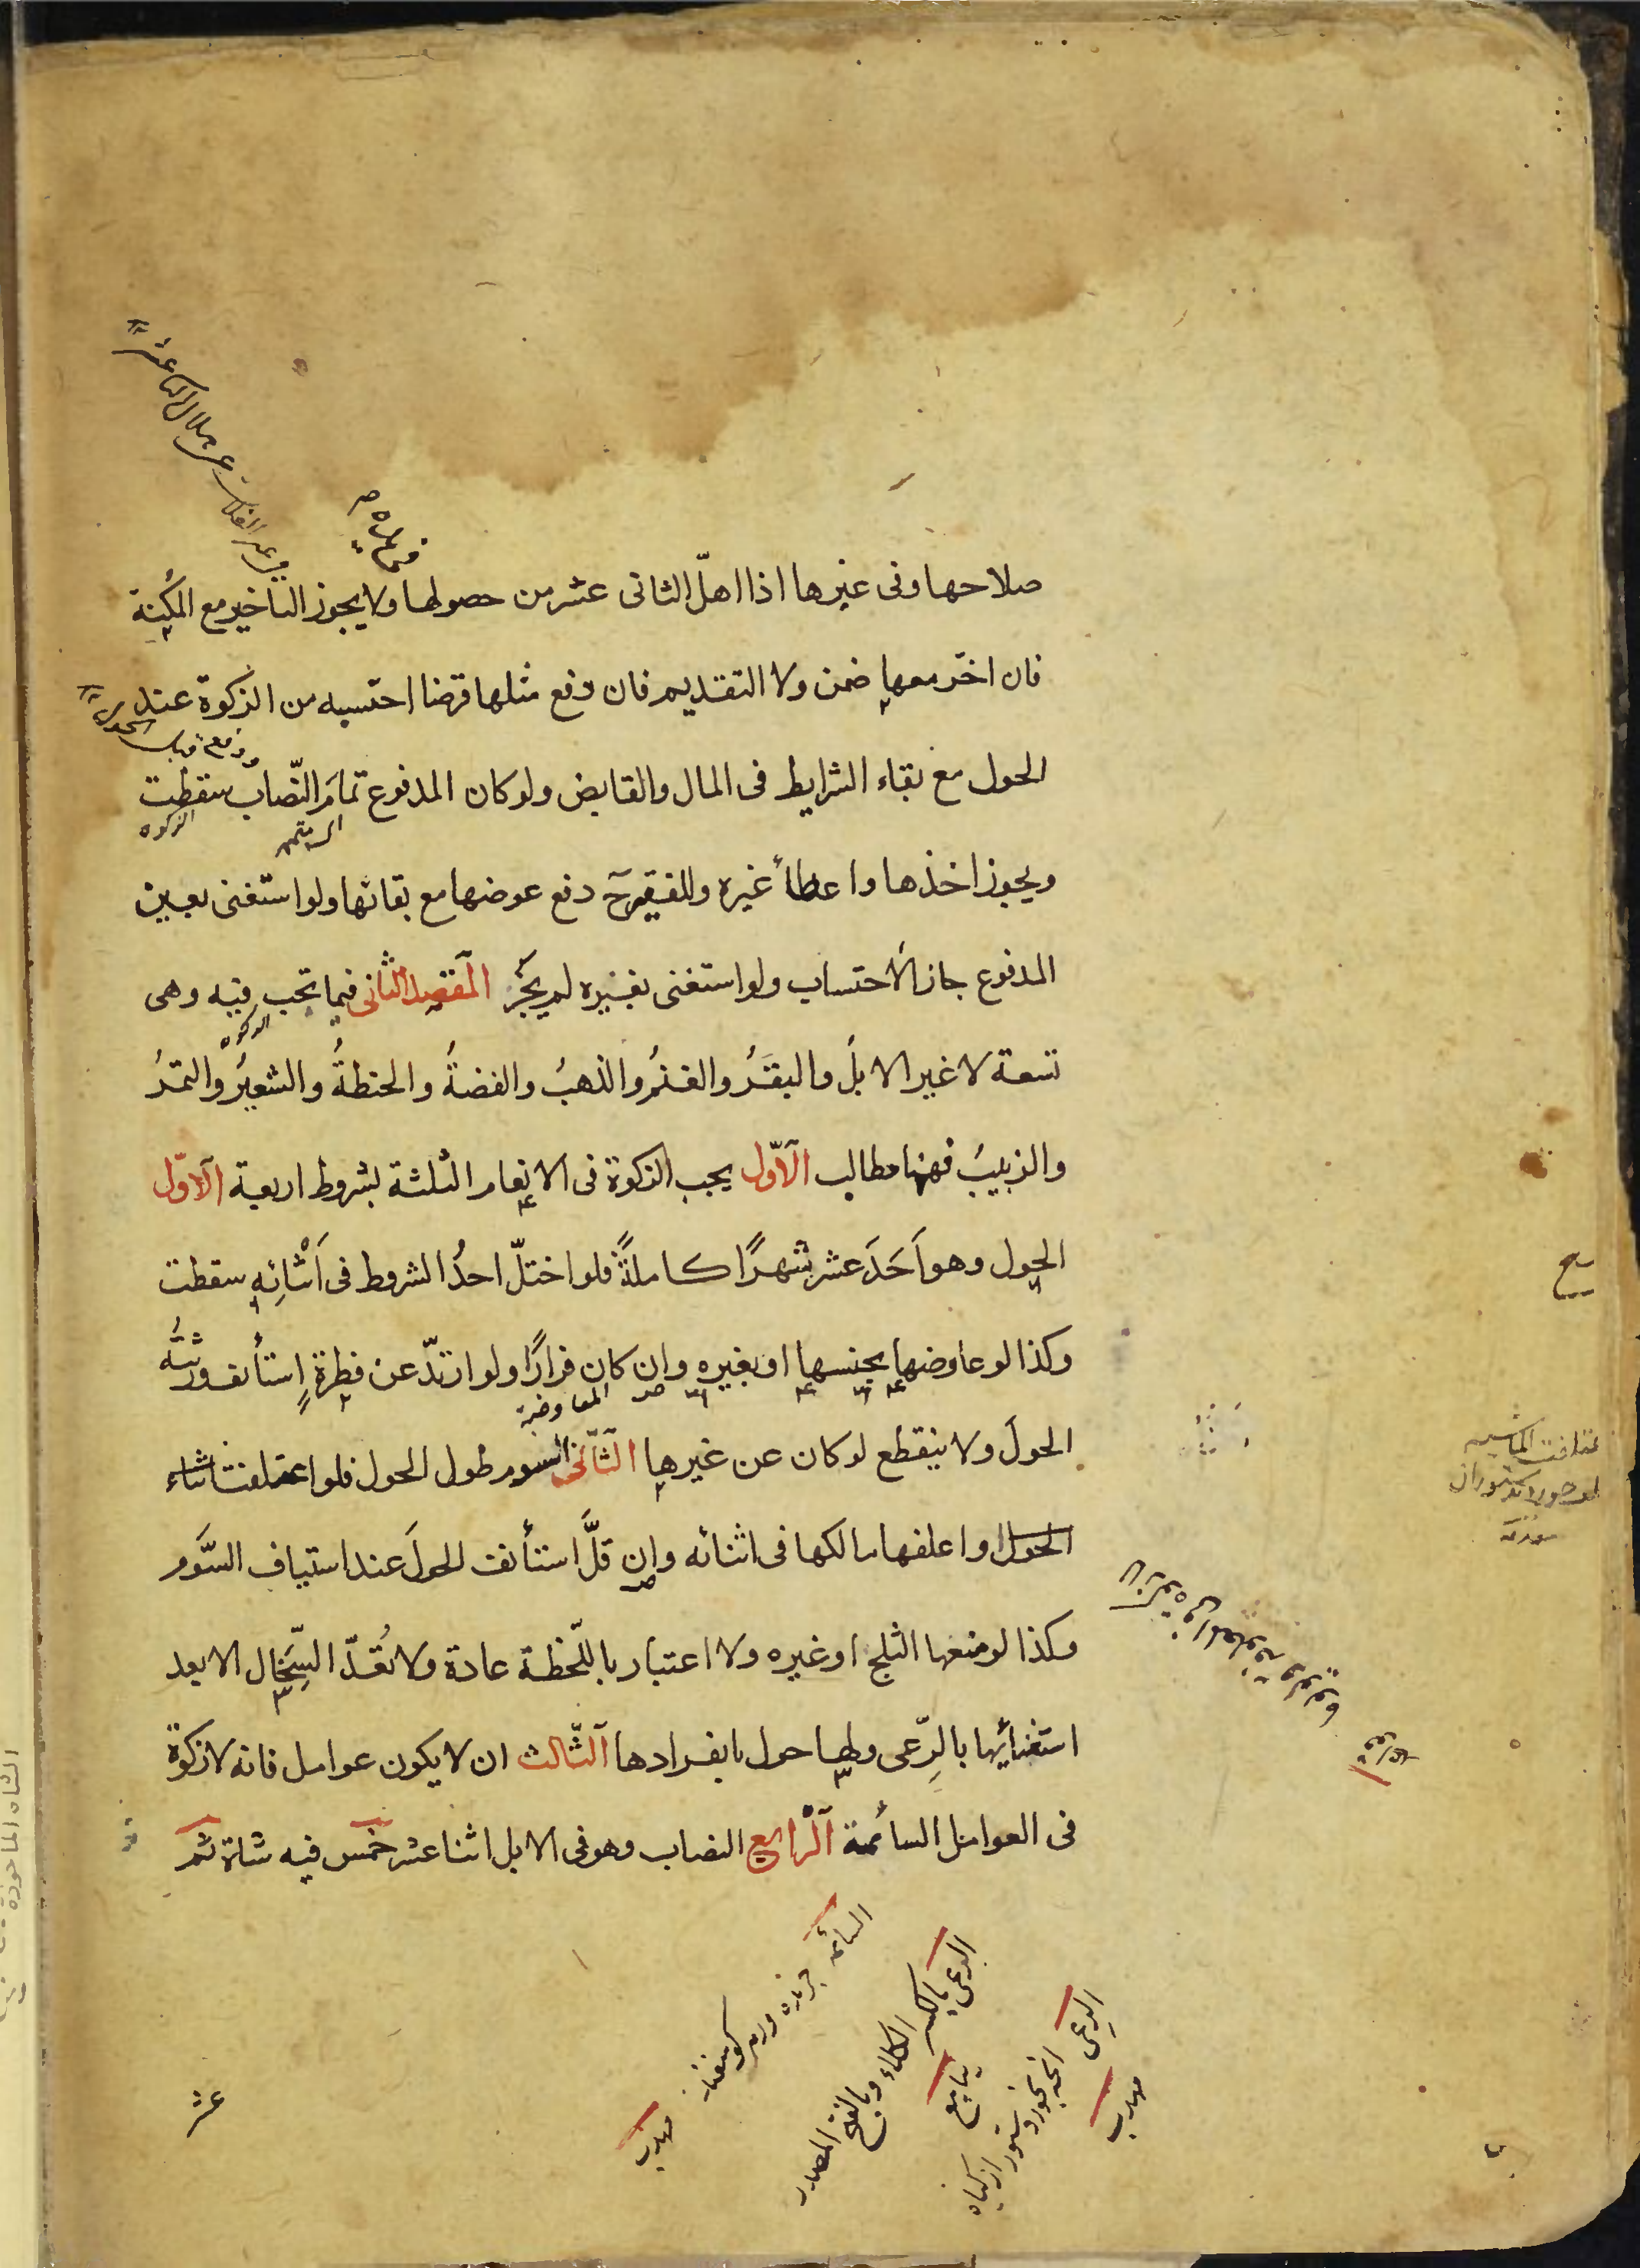 صلاحها وفى غيرها اذا اهلّ الثانى عشر من حصولها ولا يجوز التاخير مع المكنة
فان اخّر معها ضمن ولا التقديم فان دفع مثلها قرضا احتسبه من الزكوة عند
الحول مع بقاء الشرايط فى المال والقابض ولو كان المدفوع تمامَ النّصاب سقطت
الزكوة
ويجوز اخذها واعطاءُ غيره وللفقير ح دفع عوضها مع بقائها ولو استغنى بعين
المدفوع جاز الاحتساب ولو استغنى بغيره لم يجُز المقصد الثانى فيما تجب فيه وهى
الزكوة
تسعة لا غير الابلُ والبقَرُ والغنمُ والذهبُ والفضةُ والحنطةُ والشعيرُ والتمرُ
والزبيبُ فههنا مطالب الاّول يجب الزكوة فى الانعام الثلثة بشروط اربعة الاّول
الحول وهو اَحَدَ عشر شهرًا كاملةً فلو اختلّ احدُ الشروط فى اَثْنائِهِ سقطت
وكذا لو عاوضها بجنسها او بغيره وان كان فرارًا ولو ارتدّ عن فطرةٍ استأنف ورثتُه
المعاوضة
الحولَ ولا ينقطع لو كان عن غيرها الثّانى السوم طول الحول فلو اعتلفت اثناء
الحول او اعلفها مالكها فى اثنائه وان قلَّ استأنفت الحولَ عند استيناف السَّوم
وكذا لو منعها الثلج او غيره ولا اعتبار باللّحظة عادة ولا تُعدّ السِّخال الا بعد
استغنائِها بالرِّعى ولها حول بانفرادها الثّالث ان لا يكون عوامل فانه لا زكوة
فى العوامل السائمة الرّابع النصاب وهو فى الابل اثنا عشر خمس فيه شاة ثم
السائمه
الرعى بالكسر الكلاء وبالفتح المصدر
الرعى
مهذب
مهذب
عشر